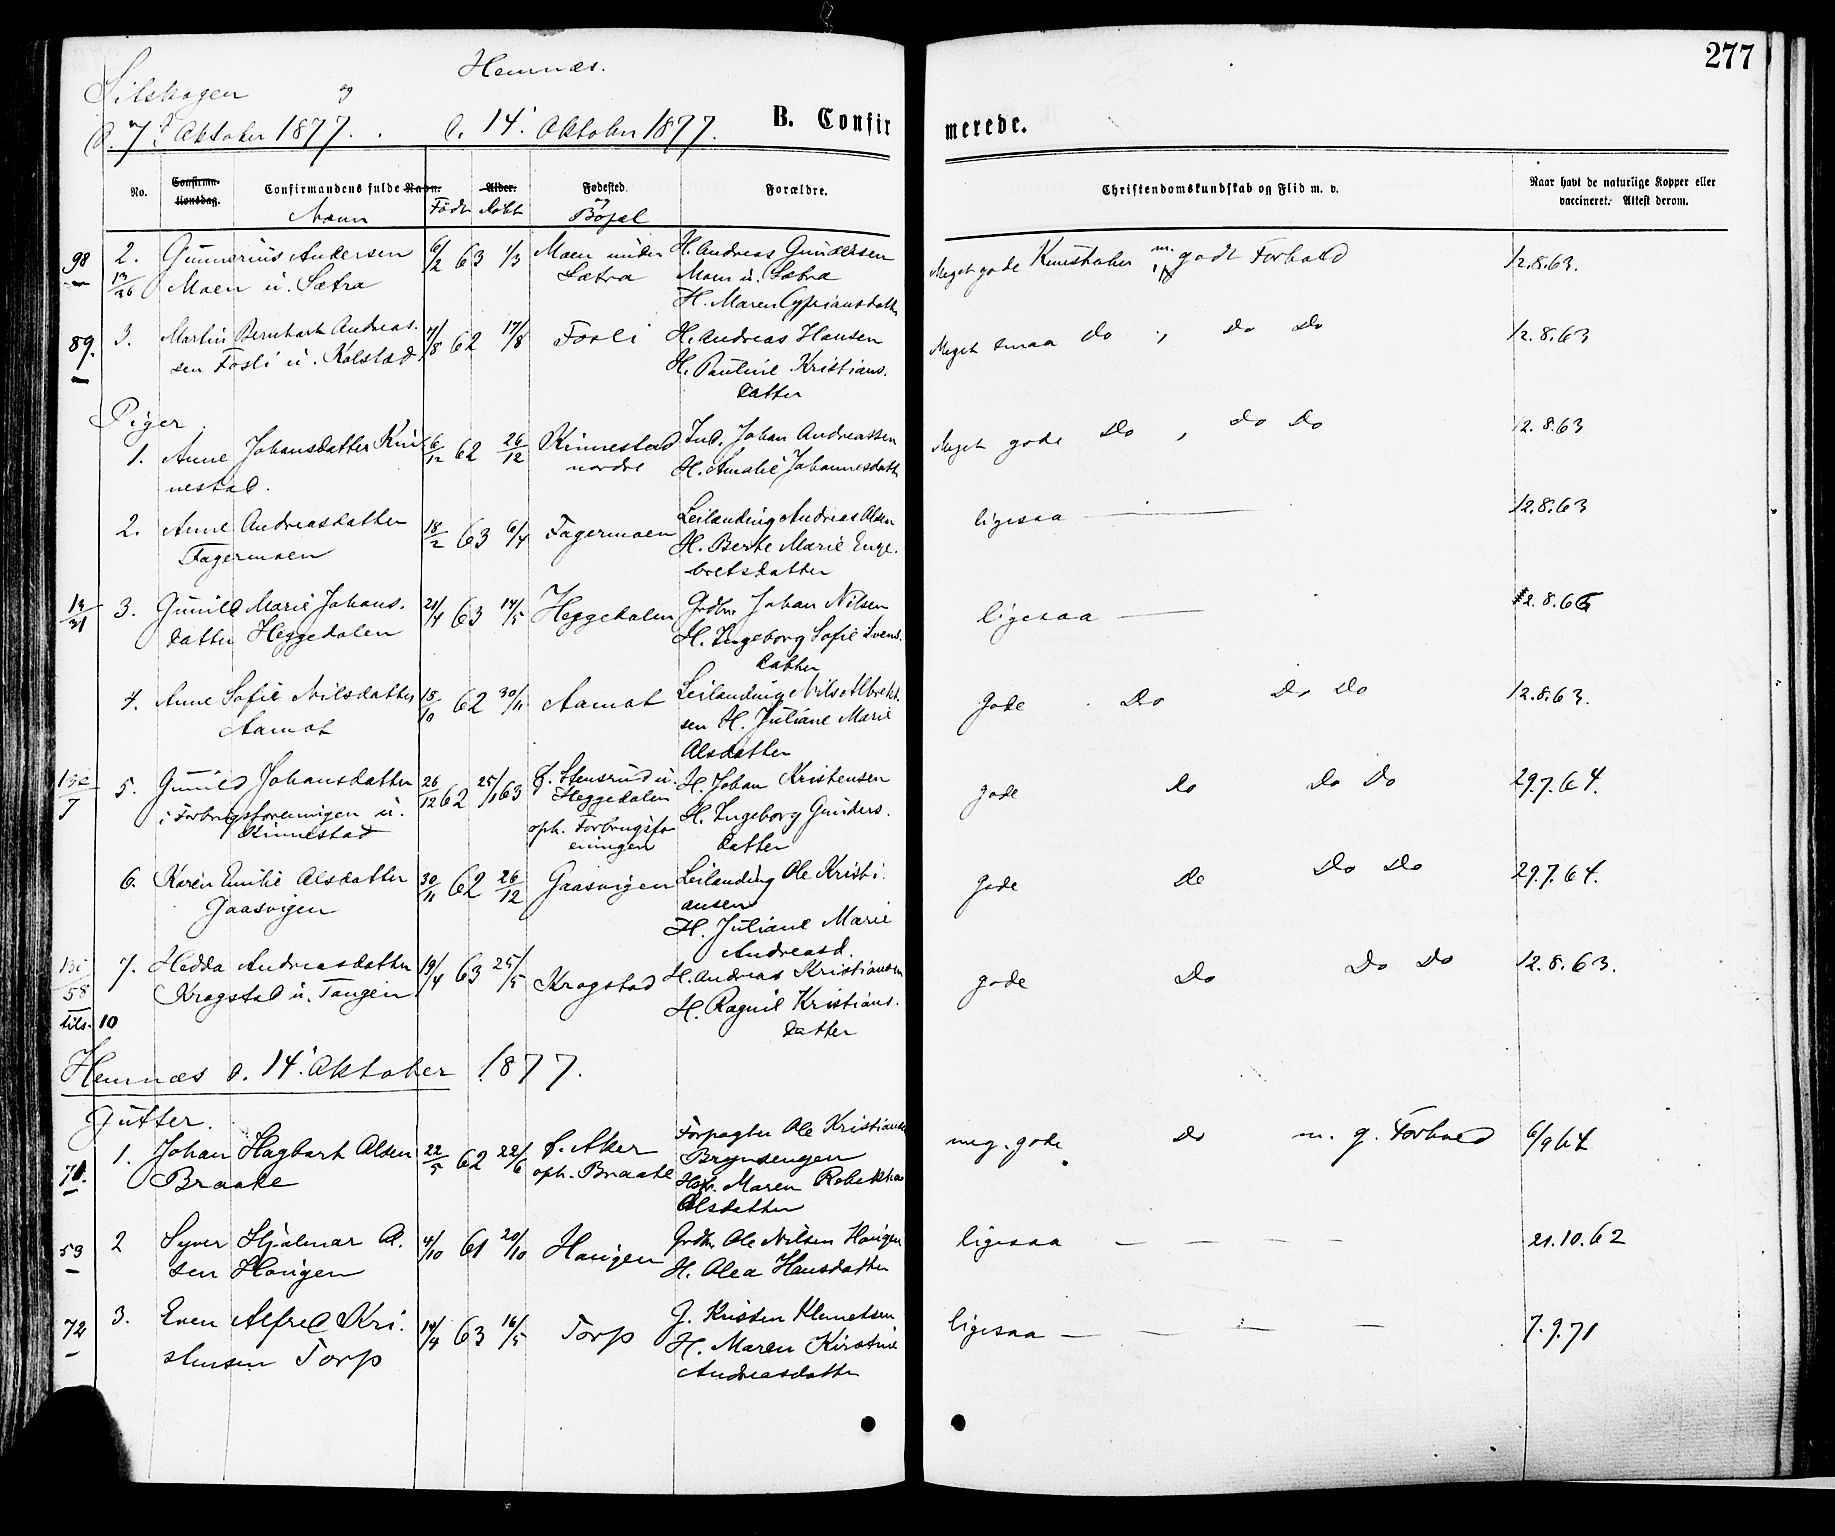 277
Hemnæs.
Silskogen og
d. 7d Oktober 1877. d. 14' Oktober 1877.
B. Confirmerede.
No. Confirmationsdag. Confirmandens fulde Navn. Alder. Fødested. Forældre. Christendomskundskab og Flid m. v. Naar havt de naturlige Kopper eller
vaccineret. Attest derom.
Navn Født Døbt og Bopæl
98 2. Gunnerius Andersen 6/2 63 1/3 Moen under H. Andreas Gundersen Meget gode Kundskaber m. godt Forhold 12.8.63.
13/26 Moen u. Sætra Sætra Moen u. Sætra
H. Maren Cypriansdatter
89. 3. Martin Bernhart Andreas. 7/8 62 17/8 Fosli H. Andreas Hansen Meget smaa do , do do 12.8.63
sen Fosli u. Kolstad H. Pauline Kristians.
datter
Piger.
1. Anne Johansdatter Kin 6/12 62 26/12 Kinnestad Ind. Johan Andreassen Meget gode Do , do do 12.8.63
nestad. nordre H. Amalie Johannesdatter
2. Anne Andreasdatter 18/2 63 6/4 Fagermoen Leilænding Andreas Olsen ligesaa 12.8.63
Fagermoen H. Berte Marie Enge.
bretsdatter
3. Gunild Marie Johans. 21/4 63 14/5 Heggedalen Grdbr. Johan Nilsen ligesaa
datter Heggedalen H. Ingeborg Sofie Svens.
datter
4. Anne Sofie Nilsdatter 18/10 62 30/11 Aamot Leilænding Nils Albrekt. gode Do Do Do 12.8.63.
Aamot sen H. Juliane Marie
Olsdatter
5. Gunild Johansdatter 26/12 62 25/1 63 f. Stensrud u. H. Johan Kristensen gode do do do 29.7.64.
i Forbrugsforeningen u. Heggedalen H. Ingeborg Gunders.
Kinnestad oph. Forbrugsfo datter
eningen
6. Karen Emilie Olsdatter 30/11 62 26/12 Gaasvigen Leilænding Ole Kristi. gode do do do 29.7.64.
Gaasvigen ansen
H. Juliane Marie
Andreasd.
7. Hedda Andreasdatter 19/4 63 25/5 Krogstad H. Andreas Kristiansen gode Do Do Do 12.8.63.
58 Krogstad u. Tangen H. Ragnil Kristians.
sils. 10 datter
Hemnæs d. 14' Oktober 1877.
Gutter.
71. 1. Johan Hagbart Olsen 22/5 62 22/6 f. Aker Forpagter Ole Kristiansen meg. gode do m. g. Forhold 6/9 64
Braate oph. Braate Brynsengen
Maren
Olsdatter
53 2 Syver Hjalmar O. 4/10 61 20/10 Haugen Grdbr. Ole Nilsen Haugen ligesaa 21.10.62
sen Haugen H. Olea Hansdatter
72 3. Even Alfred Kri. 14/4 63 16/5 Torp G. Kristen Klemetsen ligesaa 7.9.71
stensen Torp H. Maren Kirstine
Andreasdatter